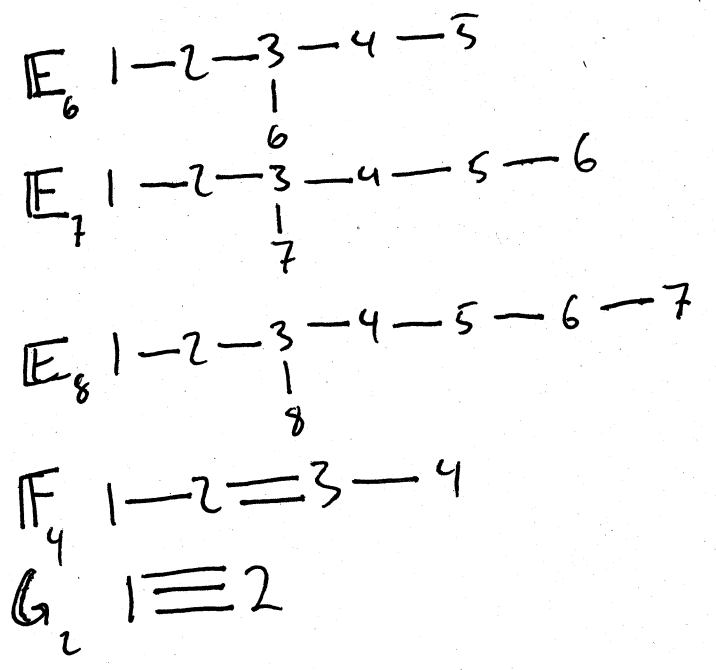 E₆ 1 — 2 — 3 — 4 — 5
|
6
E₇ 1 — 2 — 3 — 4 — 5 — 6
|
7
E₈ 1 — 2 — 3 — 4 — 5 — 6 — 7
|
8
F₄ 1 — 2 = 3 — 4
G₂ 1 ≡ 2